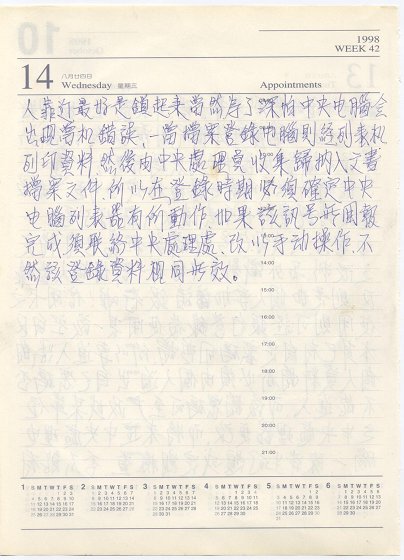 1998
WEEK 42
14
八月廿四日
Wednesday 星期三
Appointments
人靠近最好是鎖起來當然為了深怕中央电腦会
出現當机錯誤、一當檔案登錄电腦則經列表机
列印資料然後由中央處理員收集歸納入文書
檔案文件、所以在登錄時期必須確定中央
电腦列表器有所動作如果該訊号所用數
字或須联絡中央處理處、改以手动操作、不
然該登錄資料視同無效。
14:00
15:00
16:00
17:00
19:00
20:00
21:00
1 S M T W T F S
2 S M T W T F S
3 S M T W T F S
4 S M T W T F S
5 S M T W T F S
6 S M T W T F S